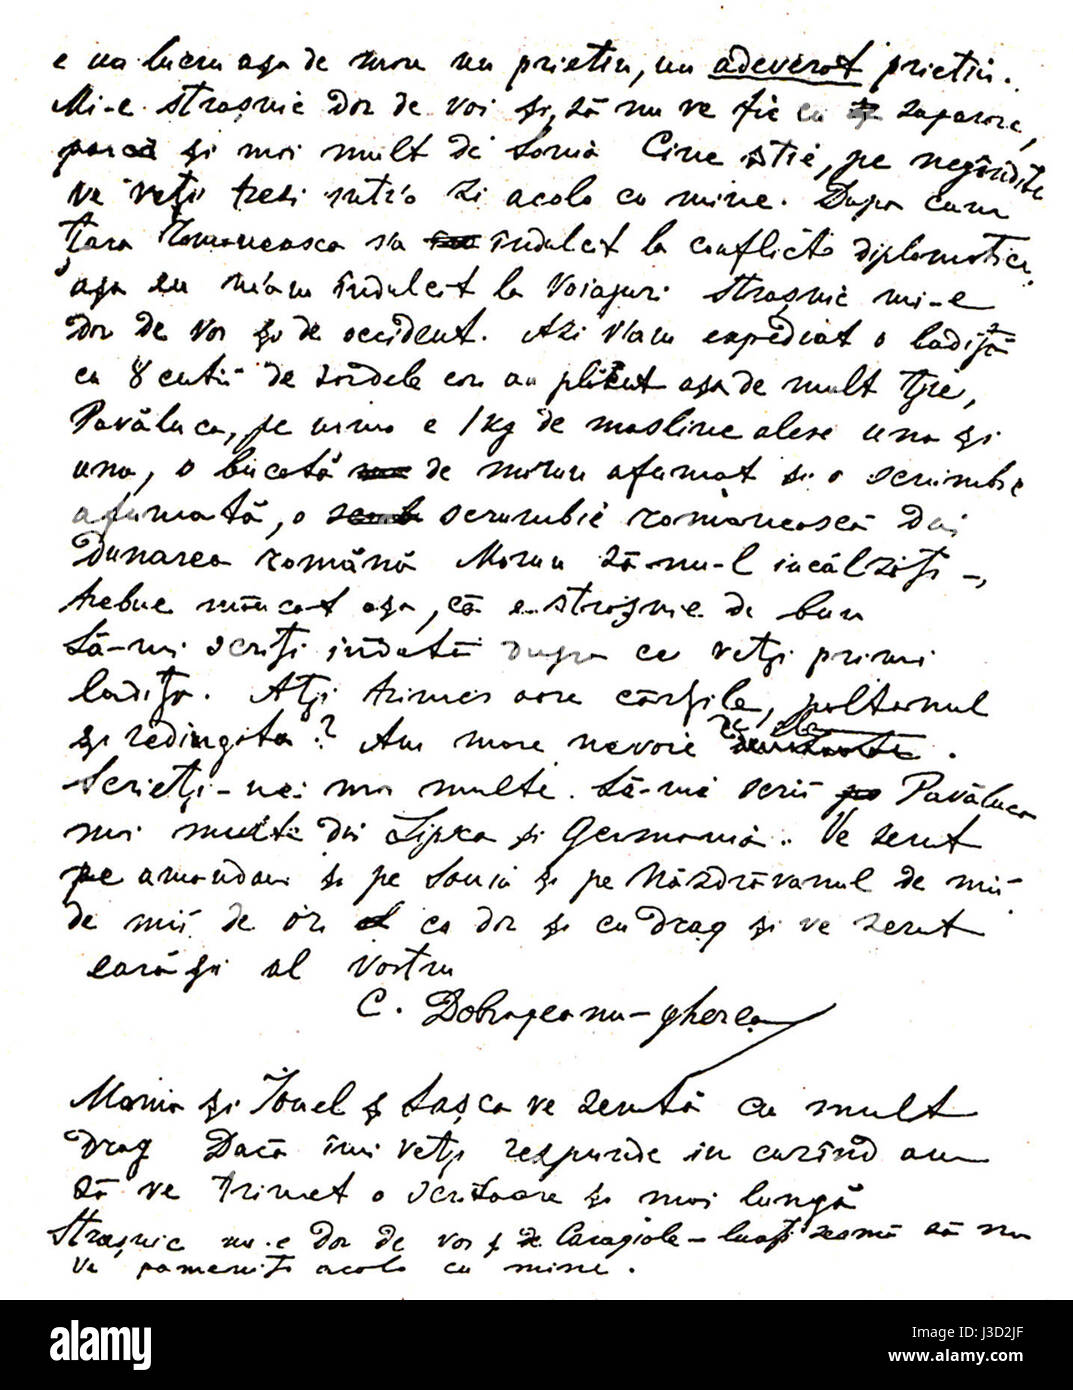 e un lucru așa de mare un prietin, un adeverat prietin.
Mi-e strașnic dor de voi și, să nu ve fie cu supărare,
parcă și mai mult de Sonia Cine știe, pe negîndite
ve veți trezi intr'o zi acolo cu mine. Dupa cum
Țara Romaneasca s'a îndulcit la conflicte diplomatice,
așa eu m'am îndulcit la voiajuri strașnic mi-e
dor de voi și de occident. Azi v'am expediat o ladiță
cu 8 cutii de sardele cari au plăcut așa de mult ție,
Pavăluca, pe urma e 1 kg de masline alese una și
una, o bucată de morun afumat și o scrumbie
afumată, o scrumbie românească din
Dunarea română Morun să-nu-l incălziți -,
trebue măncat așa, că e strașnic de bun
Să-mi scriți indată dupa ce veți primi
ladița. Ați trimes oare cărțile, paltonul
și redingota? Am mare nevoie de ele.
Scrieți-nei mai multe. Să-mi scrii Pavăluca
mai multe din Lipsca și Germania. Ve serut
pe amandoi și pe Sonia și pe Năzdrăvanul de mii
de mii de ori cu dor și cu drag și ve serut
earăși al vostru
C. Dobrogeanu-Gherea
Maria și Ionel și Sașca ve serută cu mult
drag Dacă îmi veți respunde in curînd am
să ve trimet o scrisoare și mai lungă
Strașnic mi-e dor de voi și de Caragiale - luați seamă să nu
ve pomeniți acolo cu mine.
alamy
Image ID: J3D2JF
www.alamy.com